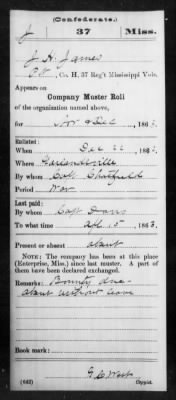 (Confederate.)
J 37 Miss.
J H James
Pvt, Co. H, 37 Reg't Mississippi Vols.
Appears on
Company Muster Roll
of the organization named above,
for Nov & Dec, 186
Enlisted:
When Dec 22, 186
Where Garlandsville
By whom Capt Chatfield
Period War
Last paid:
By whom Capt Davis
To what time Apl 15, 1863.
Present or absent absent
NOTE: The company has been at this place
(Enterprise, Miss.) since last muster. A part of
them have been declared exchanged.
Remarks: Bounty due
absent without leave
Book mark:
G. C. West
(642) Copyist.